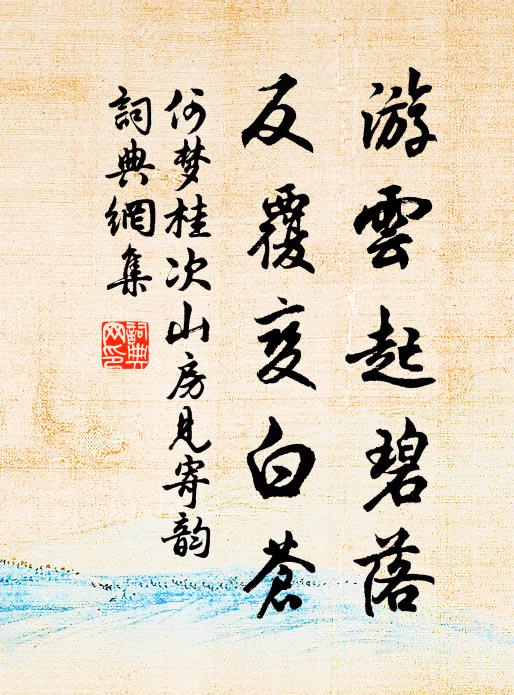 游雲起碧落
反覆变白蒼
何梦桂次山房見寄韵
詞典網集
詞典
网印